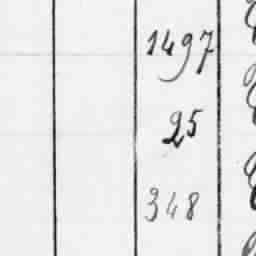 1497
25
348